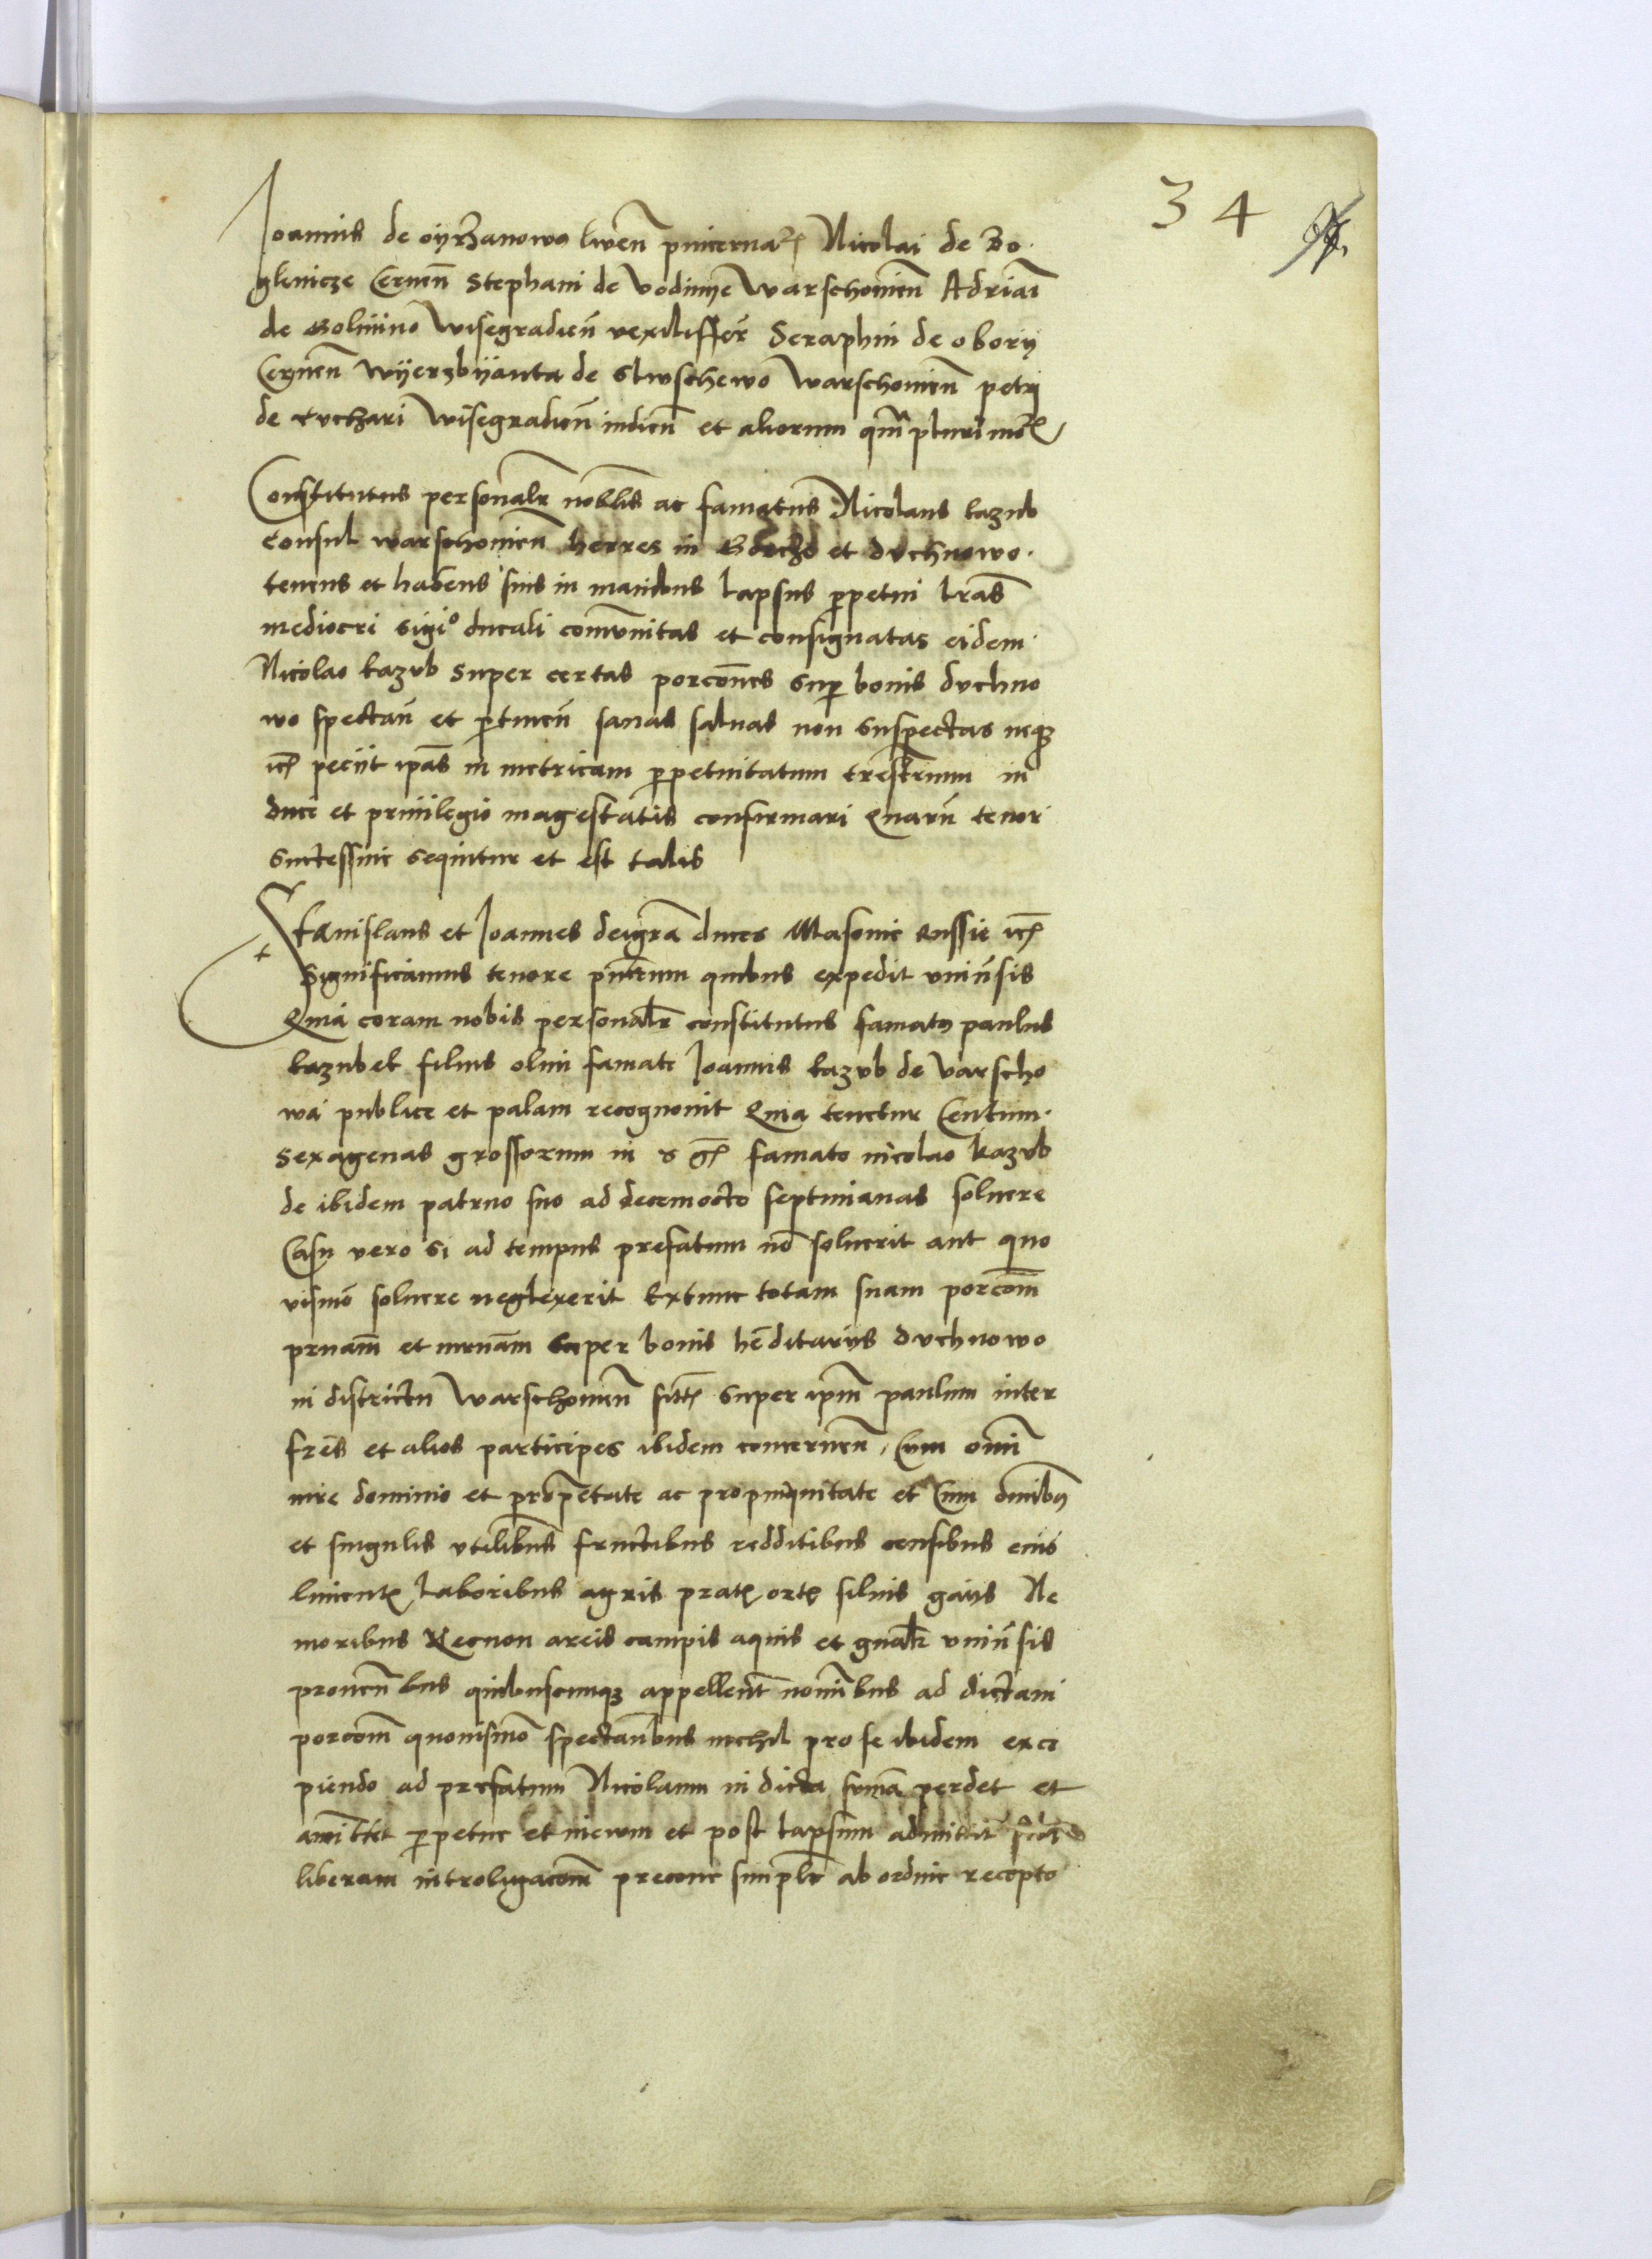 34
Joannis de oyrzanowo liwen̄ pincernaꝝ Nicolai de Bo
glenicze Cernen̄ Stephani de vodinye Warschowien̄ Adriani
de Golmino Wisegradien̄ vexilliffer̄ Seraphin de obory
Cernen̄ Wyerzbyanta de Slwschewo Warschowien̄ petri
de tvchari Wisegradien̄ iudicū et aliorum qm̄ plurimoꝝ
Constitutus personalr̄ nobilis ac famatus Nicolaus kazub
Consul warschowien̄ herres in et dvchnowo
tenens et habens suis in manibus lapsus ꝑpetui lrās
mediocri sigio ducali comūnitas et consignatas eidem
Nicolao kazvb super certas porcōnes suꝑ bonis dvchno
wo spectan̄ et ꝑtinen̄ sanas saluas non suspectas neqꝫ
icꝫ peciit ip̄as in metricam ꝑpetuitatum trēstrium in
duci et priuilegio magestatis confirmari Quarū tenor
successiue sequitur et est talis
Stanislaus et Joannes dei grā duces Masouie Russie icꝫ
Significamus tenore pn̄tium quibus expedit vniūsis
Quia coram nobis personalr̄ constitutus famatꝰ paulus
kazubel filius olim famati Joannis kazvb de varscho
wa publice et palam recognouit Quia tenetur Centum
sexagenas grossorum in famato nicolao kazvb
de ibidem patruo suo ad decemocto septimanas soluere
Casu vero si ad tempus prefatum nō soluerit aut quo
uismō soluere neglexerit Extunc totam suam porcōm
prnam̄ et mrnam̄ super bonis hēditariis dvchnowo
in districtu Warschowien̄ sitꝭ super ip̄m paulum inter
frēs et alios participes ibidem concernen̄ Cum omī
iure dominio et proprietate ac propinquitate et Cum om̄ibꝰ
et singulis vtilibus fructibus redditibus censibus emo
limentꝭ laboribus agris pratꝭ ortꝭ siluis gaiis Ne
moribus Necnon areis campis aquis et gn̄alr̄ vniūsis
prouen̄bus quibuscumqꝫ appellent̄ nomībus ad dictam
porcōm quouismō spectan̄bus nichil pro se ibidem exci
piendo ad prefatum Nicolaum in dicta sum̄a perdet et
amittet ꝑpetue et in ewm et post lapsum admittit
liberam introligacōm precone simplr̄ ab ordine recepto